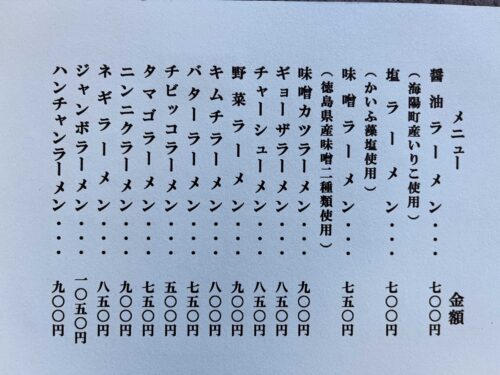 メニュー 金額
醤油ラーメン・・・七〇〇円
(海陽町産いりこ使用)
塩ラーメン・・・七〇〇円
(かいふ藻塩使用)
味噌ラーメン・・・七五〇円
(徳島県産味噌二種類使用)
味噌カツラーメン・・・九〇〇円
ギョーザラーメン・・・八五〇円
チャーシューメン・・・八五〇円
野菜ラーメン・・・九〇〇円
キムチラーメン・・・八〇〇円
バターラーメン・・・七五〇円
チビッコラーメン・・・五〇〇円
タマゴラーメン・・・七五〇円
ニンニクラーメン・・・九〇〇円
ネギラーメン・・・八五〇円
ジャンボラーメン・・・一〇五〇円
ハンチャンラーメン・・・九〇〇円